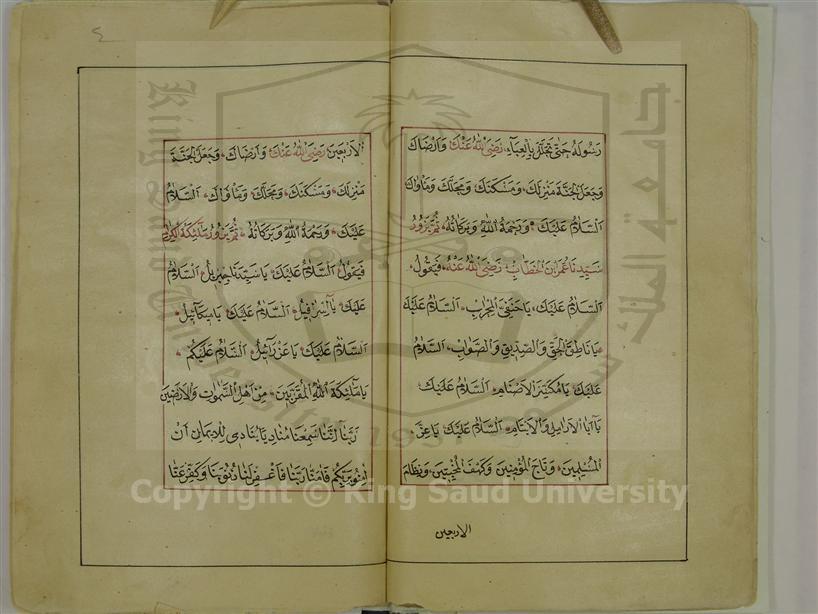 رسوله حتى تخلل بالعباء رضي الله عنك وارضاك
وجعل الجنة منزلك ومسكنك ومحلك وماواك
السلام عليك ورحمة الله وبركاته ثم يزور
سيدنا عمر بن الخطاب رضي الله عنه فيقول
السلام عليك يا حنفي المحراب السلام عليك
يا ناطق الحق والصديق والصواب السلام
عليك يا مكسر الاصنام السلام عليك
يا ابا الارامل والايتام السلام عليك يا عز
المسلمين وتاج المؤمنين وكهف المخبتين ونظام
الاربعين
٤
الاربعين رضي الله عنك وارضاك وجعل الجنة
منزلك ومسكنك ومحلك وماواك السلام
عليك ورحمة الله وبركاته ثم يزور ملئكة
فيقول السلام عليك يا سيدنا جبريل السلام
عليك يا اسرافيل السلام عليك يا ميكائيل
السلام عليك يا عزرائيل السلام عليكم
يا ملئكة الله المقربين من اهل السموات والارضين
ربنا اننا سمعنا مناديا ينادي للايمان ان
امنوا بربكم فامنا ربنا فاغفر لنا ذنوبنا وكفر عنا
Copyright © King Saud University
King Saud University
جامعة الملك سعود